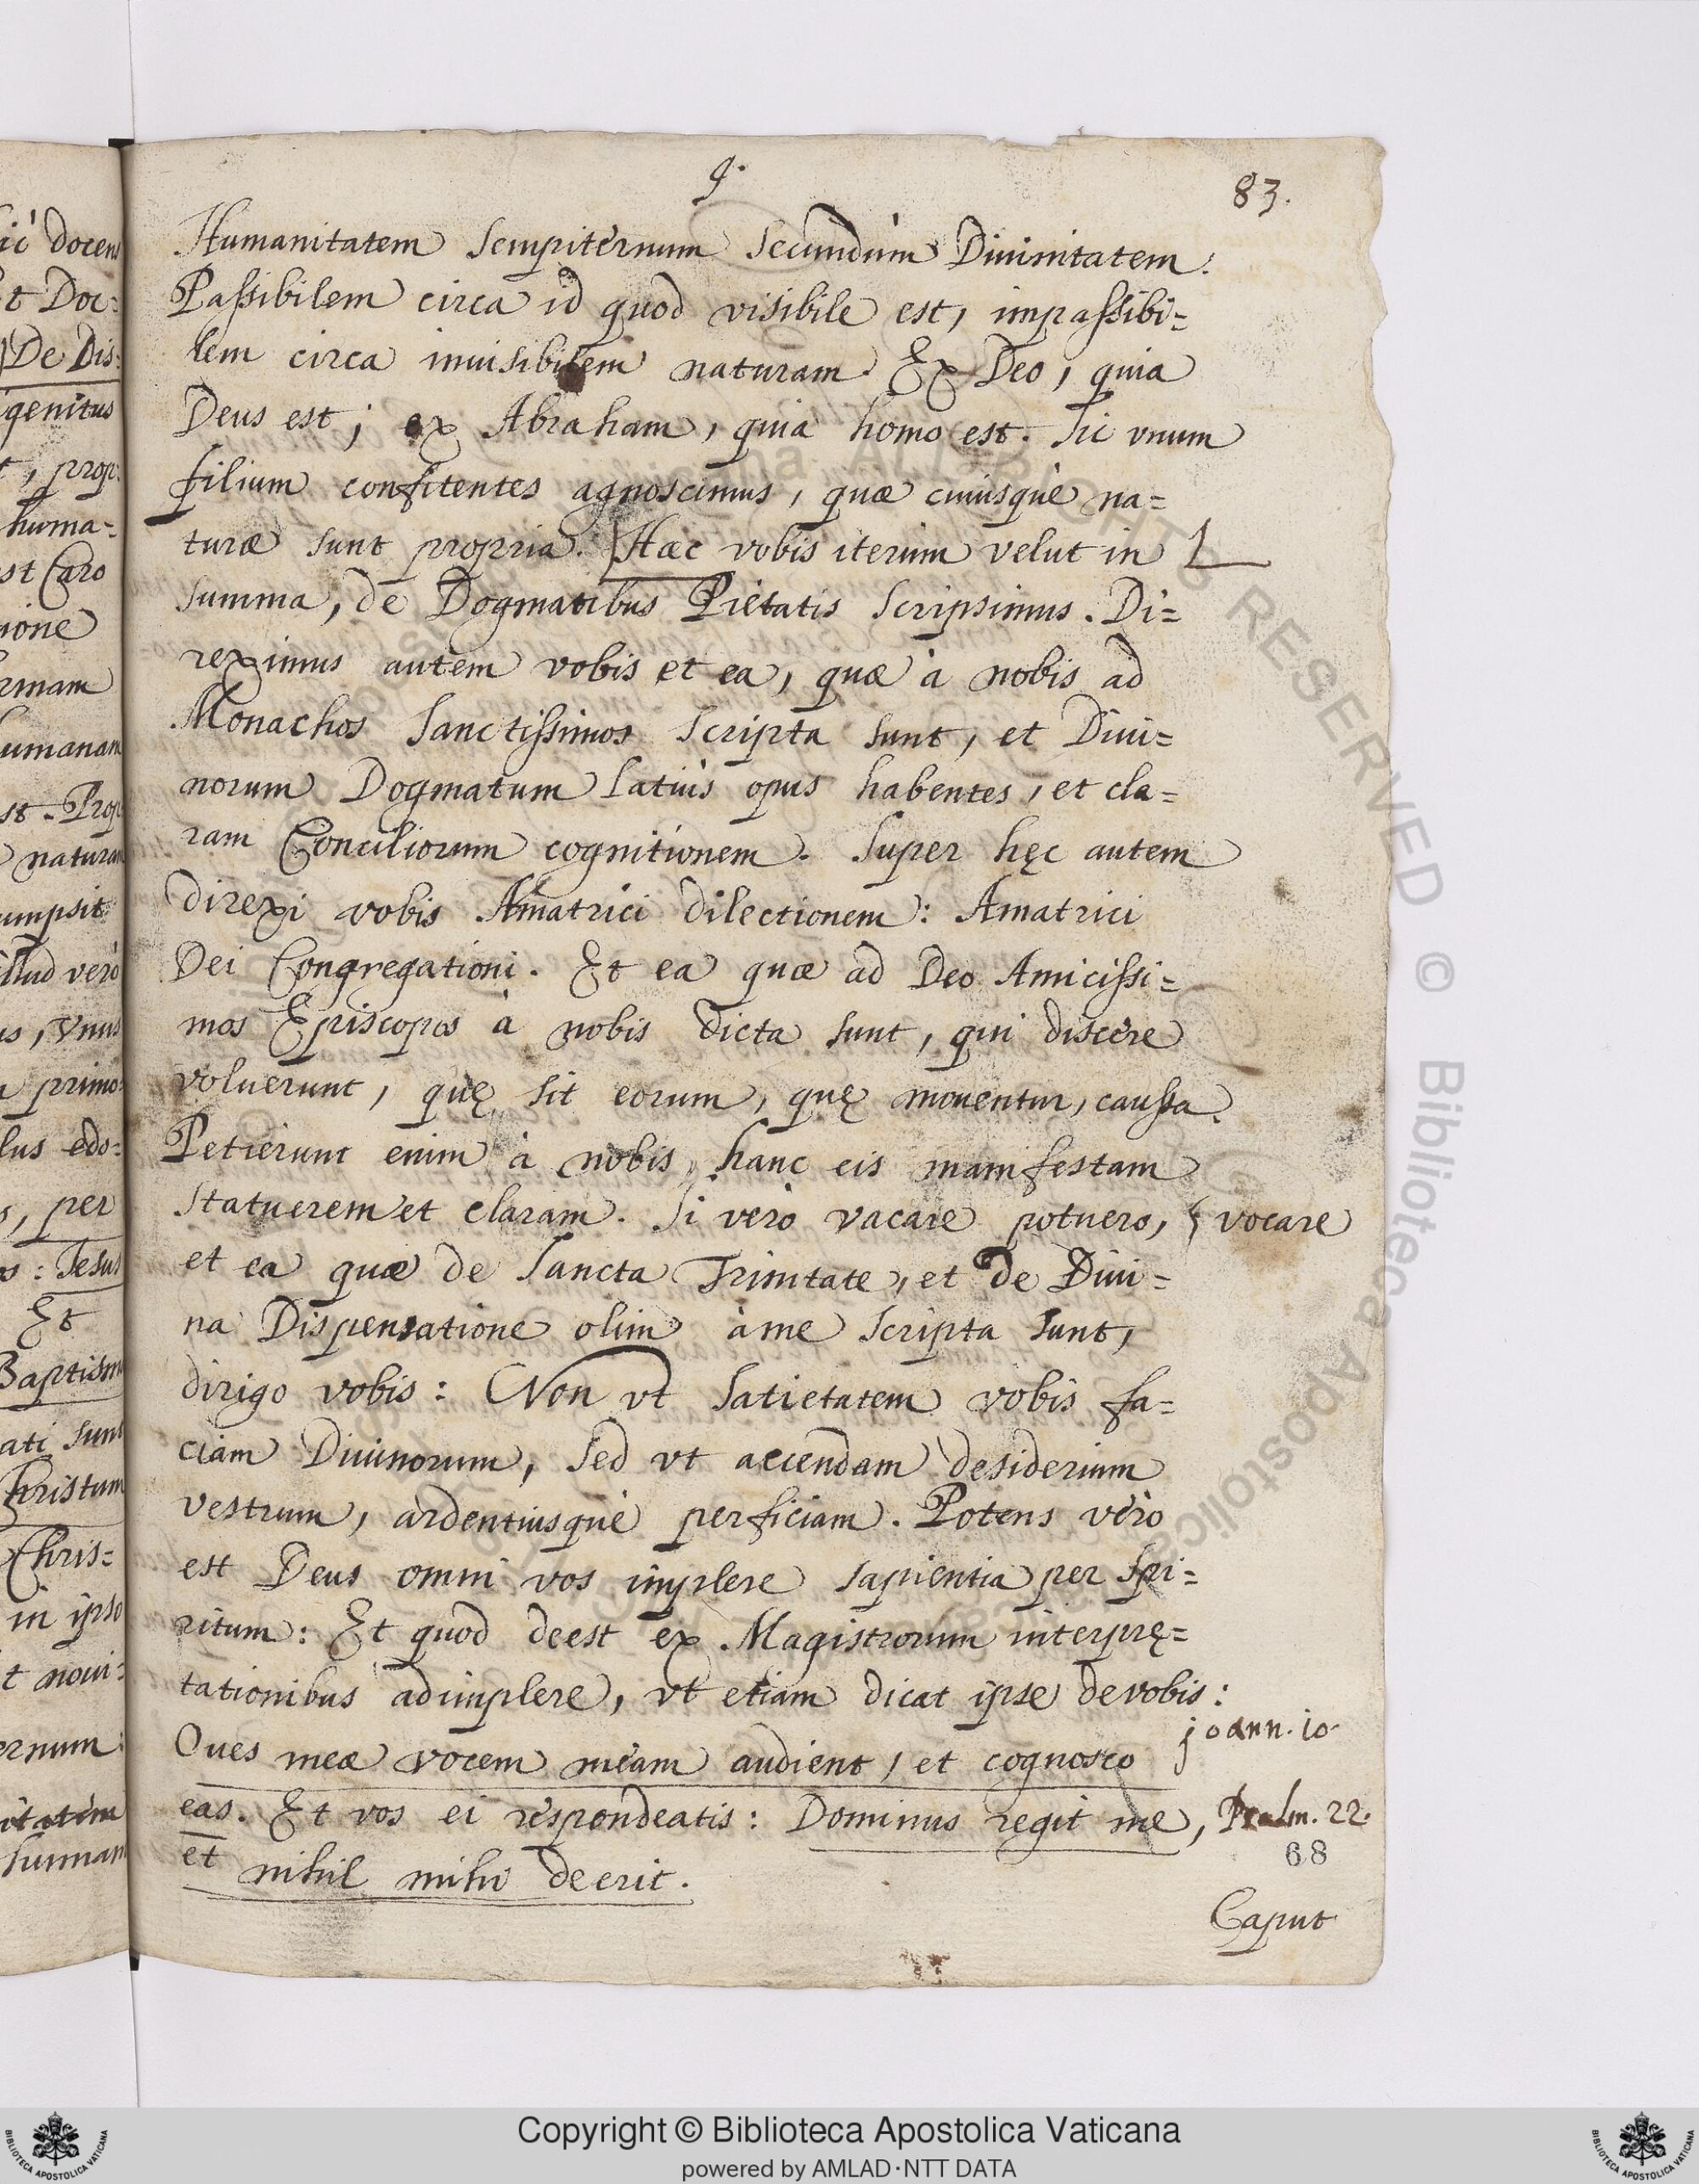 9.
83.
Humanitatem Sempiternum Secundùm Diuinitatem.
Passibilem circa id quod visibile est, impassibi=
lem circa inuisibilem naturam. Ex Deo, quia
Deus est; ex Abraham, quia homo est. Sic vnum
filium confitentes agnoscimus, quæ cuiusquè na=
turæ sunt propria. Hæc vobis iterùm velut in
summa, de Dogmatibus Pietatis scripsimus. Di=
reximus autem vobis et ea, quæ à nobis ad
Monachos Sanctissimos Scripta sunt, et Diui=
norum Dogmatum Latiùs opus habentes, et cla=
ram Conciliorum cognitionem. Super hęc autem
direxi vobis Amatrici dilectionem: Amatrici
Dei Congregationi. Et ea quæ ad Deo Amicissi=
mos Episcopos à nobis dicta sunt, qui discere
voluerunt, quę sit eorum, quę mouentur, caussa.
Petierunt enim à nobis, hanc eis manifestam
statuerem et claram. Si verò vacare potuero, vocare
et ea quæ de Sancta Trinitate, et de Diui=
na Dispensatione olim à me Scripta sunt,
dirigo vobis: Non vt Satietatem vobis fa=
ciam Diuinorum, sed vt accendam desiderium
vestrum, ardentiusquè perficiam. Potens verò
est Deus omni vos implere sapientia per Spi=
ritum: Et quod deest ex Magistrorum interprę=
tationibus adimplere, vt etiam dicat ipse de vobis:
Oues meæ vocem meam audient, et cognosco
joann. 10.
eas. Et vos ei respondeatis: Dominus regit me,
Psalm. 22.
et nihil mihi deerit.
68
Caput
ic docen
t Doc:
De Dis:
genitus
t, prop:
huma=
st Caro
ione
rmam
umanam
st. Prop
naturam
umpsit
illud verò
us, Vnus
primo
lus edo=
s, per
os: Jesus
Et
Baptism
ati sunt
Christum
Chris=
in ipso
t noui:
ernum:
itatem
humam
Copyright © Biblioteca Apostolica Vaticana
powered by AMLAD·NTT DATA